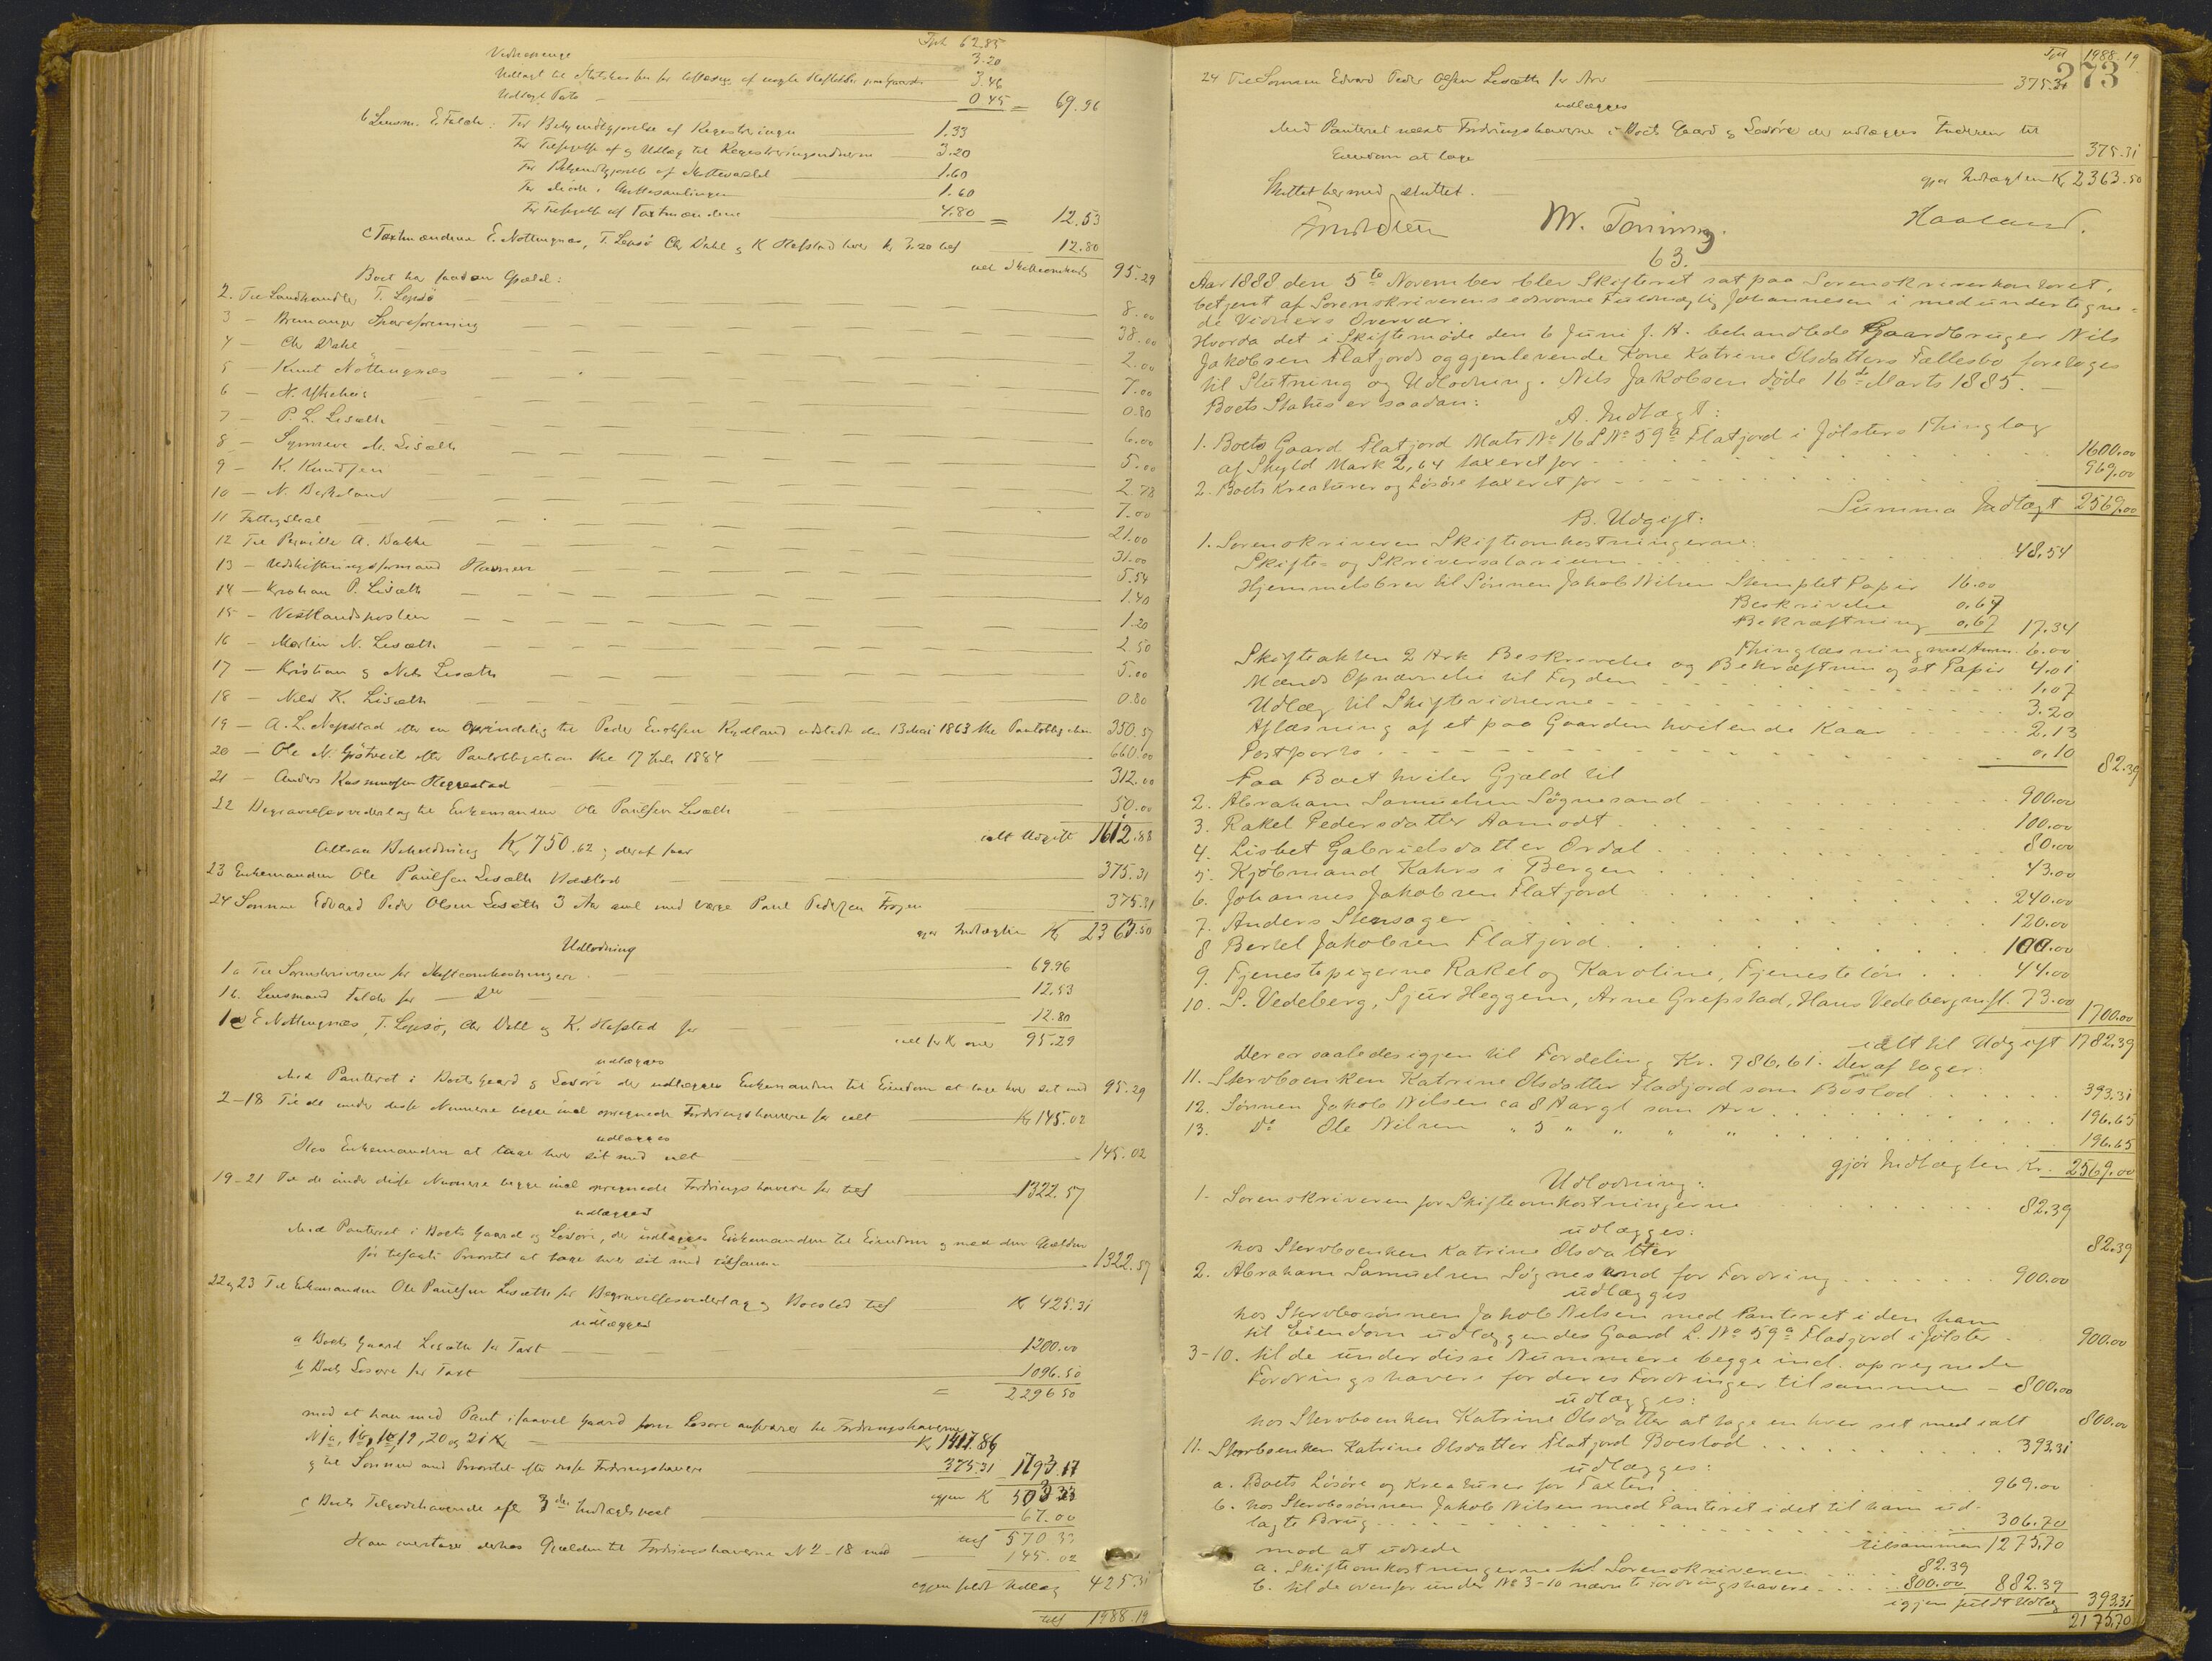 62.85
3.20
Udlagt til Statskassen for Aflæsning af
3.46
Udlagt Porto 0.45 = 69.96
b Lensm. E. Falch: For Bekjendtgjørelse af Registreringen 1.33
For Tilsigelse af og Udlæg til Registreringsvidnerne 3.20
For Bekjendtgjørelse af 1.60
For Møde i 1.60
For Tilsigelse af Taxtmændene 4.80 = 12.53
c Taxtmændene E. Nottingnæs, T. Lepsö Chr Dahl og K Hafstad hver kr 3.20 tils 12.80
ialt Skifteomkost. 95.29
Boet har saadan Gjæld:
2. Til Landhandler T. Lepsö 8.00
3 — Bremanger Spareforening 38.00
4 — Chr Dahl 2.00
5 — Knut Nöttingnæs 7.00
6 — N. 0.80
7 — P. L. Lisæth 6.00
8 — Synneve M. Lisæth 5.00
9 — K. Knudsen 2.78
10 — N. Birkeland 7.00
11 Fattigskat 21.00
12 Til Pernille A. Bakke 31.00
13 — Udskiftningsformand 5.54
14 — P. Lisæth 1.40
15 — Vestlandsposten 1.20
16 — Martin N. Lisæth 2.50
17 — Kristian og Nils Lisæth 5.00
18 — Nils K. Lisæth 0.80
19 — A. L. Nepstad efter en oprindelig til Peder Enoksen Rydland udstedt den 13 Mai 1863 Pantobligation 350.57
20 — Ole N. Gjötveit efter Pantobligation 17 Juli 1884 660.00
21 — Anders Rasmussen Heggestad 312.00
22 Begravelsesvederlag til Enkemanden Ole Paulsen Lisæth 50.00
ialt Udgift 1612.88
Altsaa Beholdning Kr 750.62; deraf faar
23 Enkemanden Ole Paulsen Lisæth Boeslod 375.31
24 Sönnen Edvard Peder Olsen Lisæth 3 Aar med Værge Paul Pedersen 375.31
gjør Indtægten Kr 2363.50
Udlodning
1a Til Sorenskriveren for Skifteomkostninger 69.96
1b. Lensmand Falch for — Do 12.53
1c E Nottingnæs, T. Lepsö, Chr Dahl og K. Hafstad for 12.80
95.29
udlægges
Med Panteret i Boets Gaard og Lösöre der udlægges Enkemanden til Eiendom at tage hver sit med 95.29
2–18 Til de under disse Numere begge incl. opregnede Fordringshavere for ialt Kr 145.02
udlægges
Hos Enkemanden at tage hver sit med ialt 145.02
19–21 Til de under disse Numere begge incl opregnede Fordringshavere for tils 1322.57
udlægges
Med Panteret i Boets Gaard og Lösöre, der udlægges Enkemanden til Eiendom og med den Gjælden
før tilfaldt Prioritet at tage hver sit med tilsammen 1322.57
22 og 23 Til Enkemanden Ole Paulsen Lisæth for Begravelsesvederlag og Boeslod tils Kr 425.31
udlægges
a Boets Gaard Lisæth for Taxt 1200.00
b Boets Lösöre for Taxt 1096.50
= 2296.50
mod at han med Pant i saavel Gaard som Lösöre ansvarer til Fordringshaverne
N 1a, 1b, 1c, 19, 20 og 21 Kr Kr 1417.86
og til Sönnen med Prioritet efter disse Fordringshavere 375.31 1793.17
igjen K 503.33
c Boets Tilgodehavende efter 3die Indtægtspost 67.00
tils 570.33
Han overtager derhos Gjælden til Fordringshaverne N 2–18 med 145.02
igjen fuldt Udlæg 425.31
tils 1988.19
1988.19
273
24 Til Sønnen Edvard Peder Olsen Lisæth for Arv 375.31
udlægges
Med Panteret næst Fordringshaverne i Boets Gaard og Lösöre der udlægges Faderen til
Eiendom at tage 375.31
gjør Indtægten Kr 2363.50
Skiftet hermed sluttet.
M. Tonning. Haaland.
63.
Aar 1888 den 5te November blev Skifteret sat paa Sorenskriverkontoret,
betjent af Sorenskriverens edsvorne Fuldmægtig Johannesen i medundertegne-
de Vidners Overvær.
Hvorda det i Skiftemöde den 6 Juni f. A. behandlede Gaardbruger Nils
Jakobsen Flatjords og gjenlevende Kone Katrine Olsdatters Fællesbo foretoges
til Slutning og Udlodning. Nils Jakobsen döde 16de Marts 1885. —
Boets Status er saadan:
A. Indtægt:
1. Boets Gaard Flatjord Matr No 16 L No 59a Flatjord i Jölsters Thinglag
af Skyld Mark 2,64 taxeret for 1600.00
2. Boets Kreaturer og Lösöre taxeret for 969.00
Summa Indtægt 2569.00
B. Udgift:
1. Sorenskriveren Skifteomkostningerne:
Skifte- og Skriversalarium 48.54
Hjemmelsbrev til Sönnen Jakob Nilsen Stemplet Papir 16.00
Beskrivelse 0.67
Bekræftning 0.67 17.34
Thinglæsning med Anm. 6.00
Skifteakten 2 Ark Beskrivelse og Bekræftning og st Papir 4.01
Mænds Opnævnelse til Fogden 1.07
Udlæg til Skiftevidnerne 3.20
Aflæsning af et paa Gaarden hvilende Kaar 2.13
Postporto 0.10 82.39
Paa Boet hviler Gjæld til
2. Abraham Samuelsen Sögnesand 900.00
3. Rakel Pedersdatter Aamodt 100.00
4. Lisbet Gabrielsdatter Ordal 80.00
5. Kjöbmand Kahrs i Bergen 43.00
6. Johannes Jakobsen Flatjord 240.00
7. Anders Stensager 120.00
8 Bertel Jakobsen Flatjord 100.00
9. Tjenestepigerne Rakel og Karoline, Tjenestelön 44.00
10. S. Vedeberg, Sjur Heggem, Arne Grepstad, Hans Vedeberg m fl. 73.00 1700.00
ialt til Udgift 1782.39
Der er saaledes igjen til Fordeling Kr. 786,61. Deraf tager:
11. Stervboenken Katrine Olsdatter Fladjord som Boslod 393.31
12. Sönnen Jakob Nilsen ca 8 Aar gl som Arv 196.65
13. Do Ole Nilsen " 5 " " " " 196.65
gjör Indtægten Kr. 2569.00
Udlodning:
1. Sorenskriveren for Skifteomkostningerne 82.39
udlægges:
hos Stervboenken Katrine Olsdatter 82.39
2. Abraham Samuelsen Sögnesand for Fordring 900.00
udlægges
hos Stervbosönnen Jakob Nilsen med Panteret i den ham
til Eiendom udlæggendes Gaard L. No 59a Fladjord i Jölster 900.00
3-10. til de under disse Nummere begge incl. opregnede
Fordringshavere for deres Fordringer tilsammen – 800.00
udlægges:
hos Stervboenken Katrine Olsdatter at tage en hver sit med ialt 800.00
11. Stervboenken Katrine Olsdatter Flatjord Boeslod 393.31
udlægges:
a. Boets Lösöre og Kreaturer for Taxten 969.00
b. hos Stervbosönnen Jakob Nilsen med Panteret i det til ham ud-
lagte Brug 306.70
tilsammen 1275.70
mod at udrede
a. Skifteomkostningerne til Sorenskriveren 82.39
b. til de ovenfor under No 3-10 nævnte Fordringshavere 800.00 882.39
igjen fuldt Udlæg 393.31
2175.70